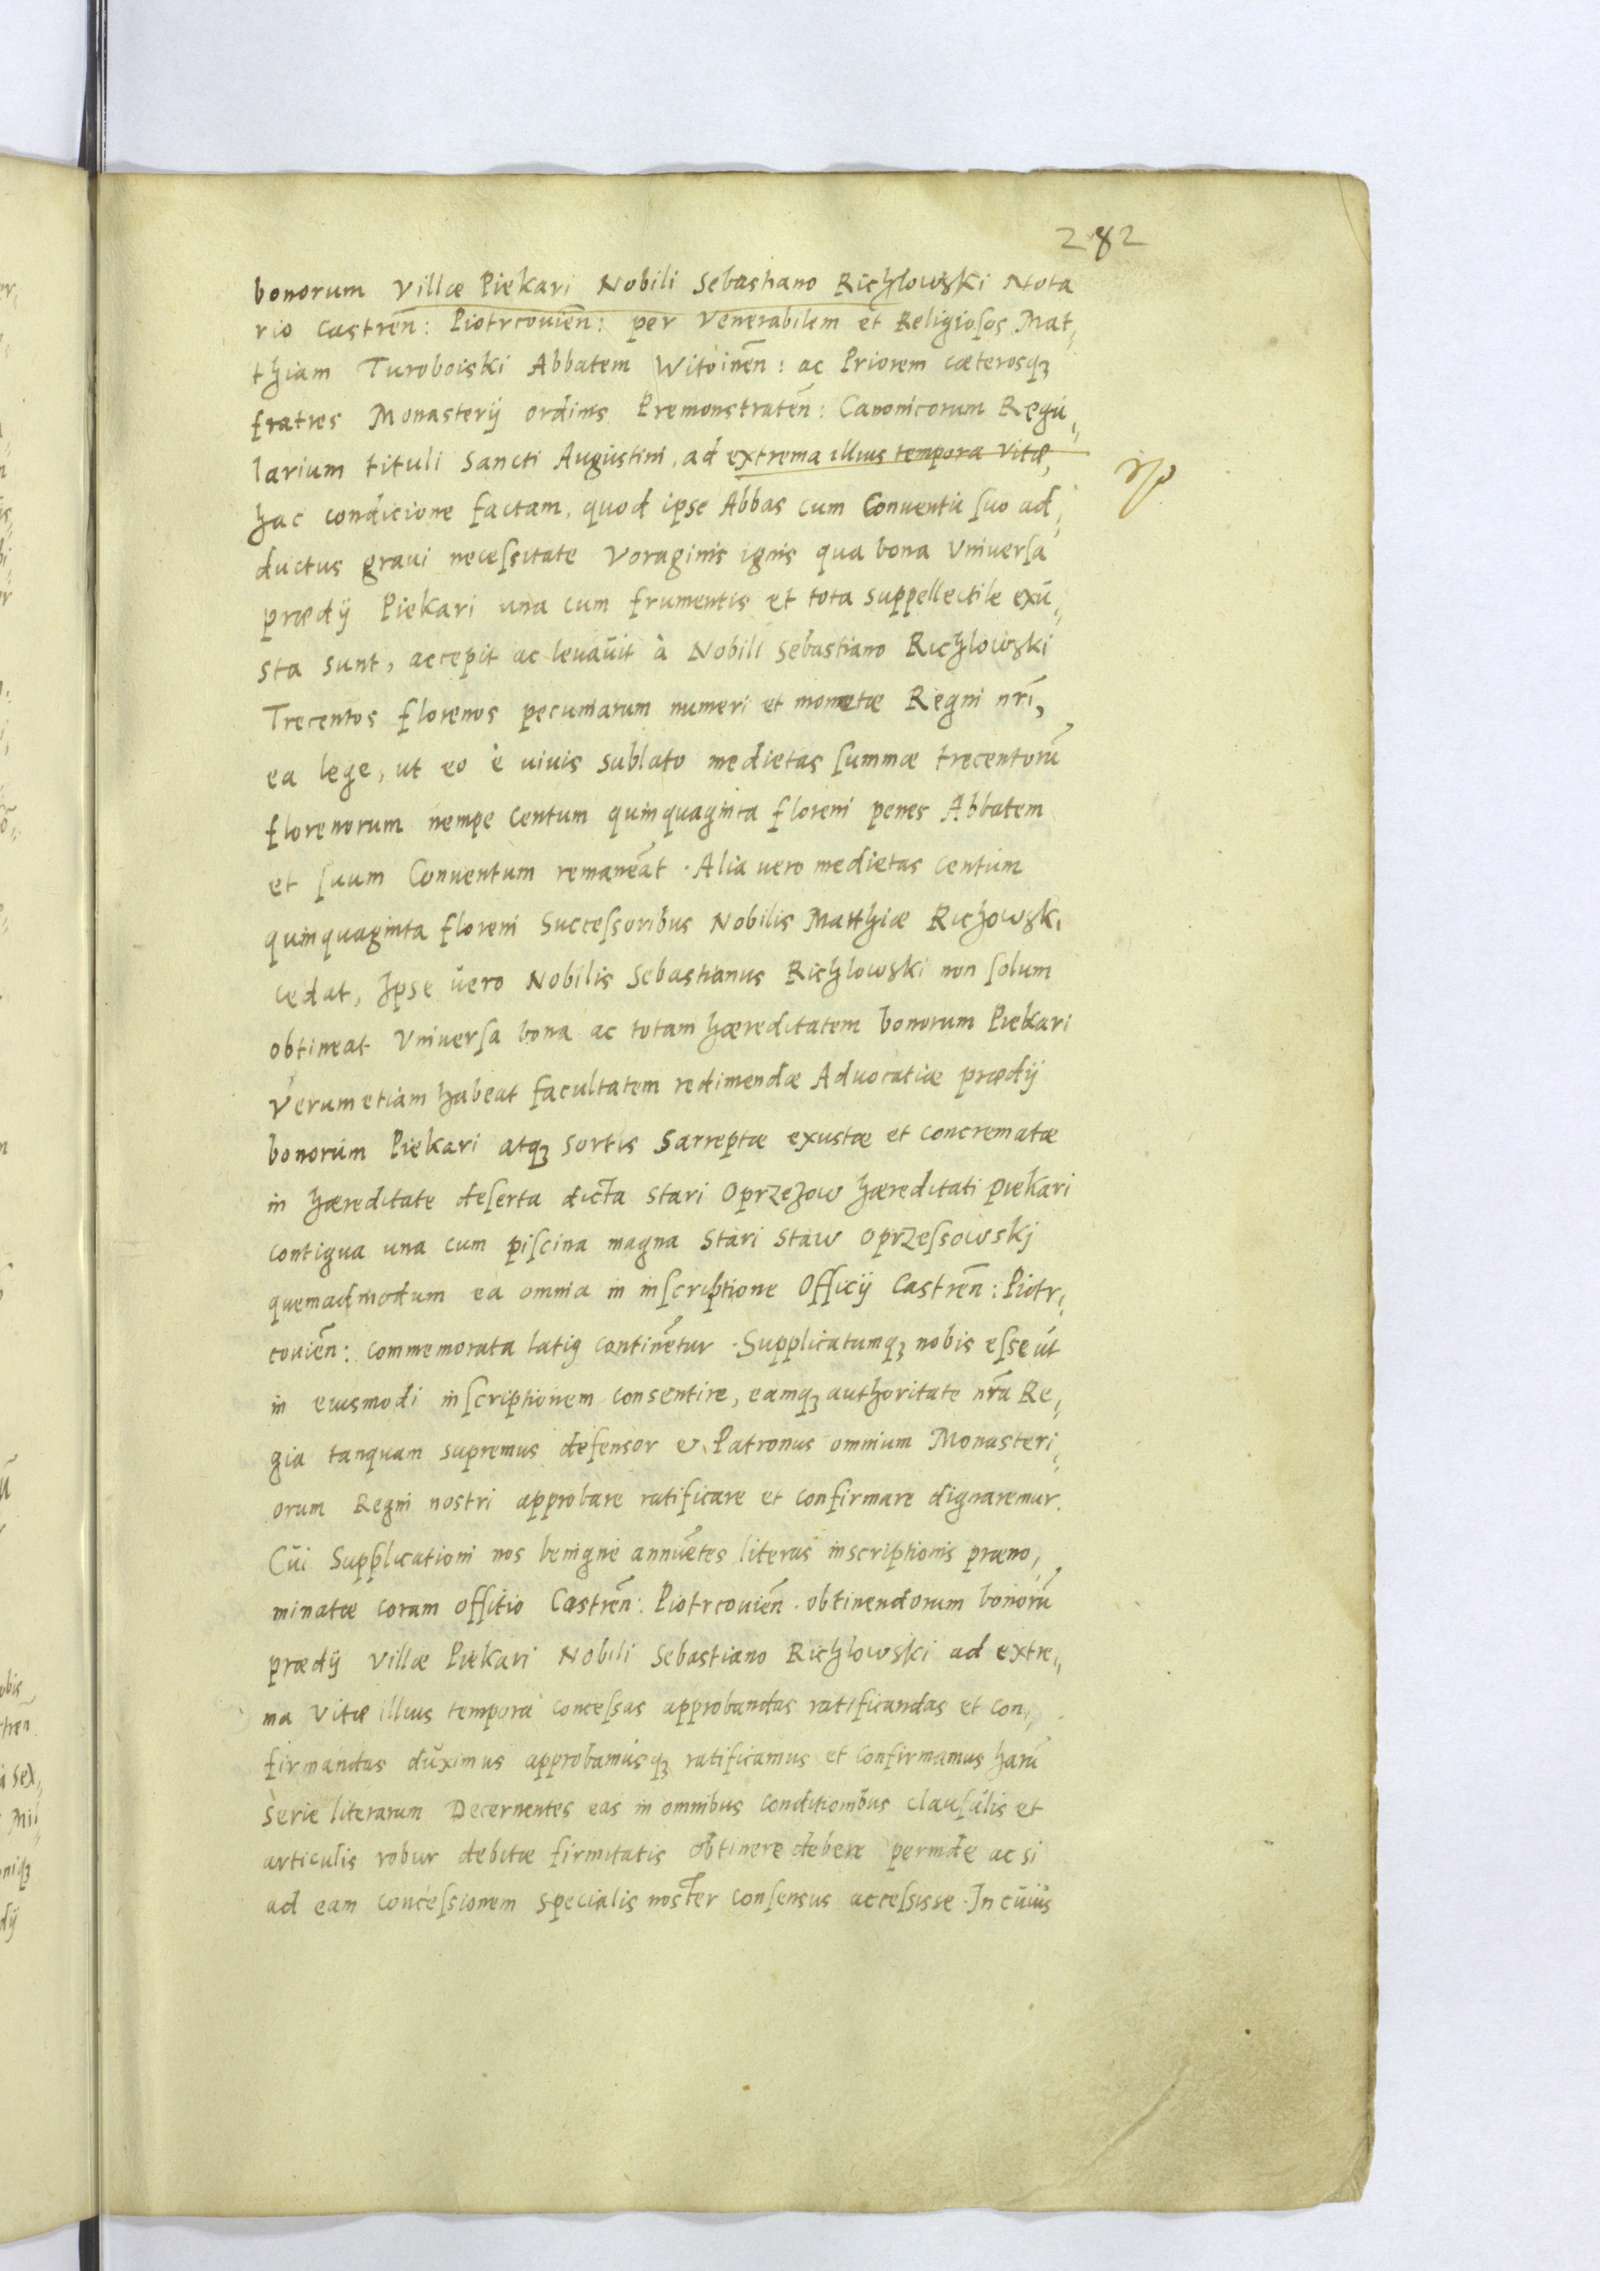 282
bonorum Villæ Piekari Nobili Sebastiano Richlowski Nota
rio Castreñ: Piotrcovieñ: per Venerabilem et Religiosos Mat,,
thiam Turoboiski Abbatem Witoineñ: ac Priorem cæterosqꝫ
fratres Monasterij ordinis Premonstrateñ: Canonicorum Regu,,
larium tituli Sancti Augustini, ad extrema illius tempora vitæ,
hac condicione factam, quod ipse Abbas cum Conventu suo ad,,
ductus gravi necessitate Voraginis ignis qua bona Universa
prædij Piekari una cum frumentis et tota suppellectile exu,,
sta sunt, accepit ac levavit à Nobili Sebastiano Richlowski
Trecentos florenos pecuniarum numeri et monetæ Regni nr̃i,
ea lege, ut eo è vivis sublato medietas summæ trecentorũ
florenorum nempe Centum quinquaginta floreni penes Abbatem
et suum Conventum remaneãt. Alia vero medietas centum
quinquaginta floreni Successoribus Nobilis Matthiæ Richowski
cedat, Ipse vero Nobilis Sebastianus Richlowski non solum
obtineat Universa bona ac totam hæreditatem bonorum Piekari
Verum etiam habeat facultatem redimendæ Advocatiæ prædij
bonorum Piekari atqꝫ sortis Sarreptæ exustæ et concrematæ
in hæreditate deserta dicta Stari Oprzehow hæreditati Piekari
contigua una cum piscina magna Stari Staw Oprzessowskj
quemadmodum ea omnia in inscriptione Officij Castreñ: Piotr,,
covieñ: commemorata latiꝯ continẽtur. Supplicatumqꝫ nobis esse ut
in eiusmodi inscriptionem consentire, eamqꝫ authoritate nr̃a Re,,
gia tanquam supremus defensor & Patronus omnium Monasteri,,
orum Regni nostri approbare ratificare et confirmare dignaremur.
Cui Supplicationi nos benigne annuẽtes literas inscriptionis præno,,
minatæ coram officio Castreñ: Piotrcovieñ. obtinendorum bonorũ
prædij Villæ Piekari Nobili Sebastiano Richlowski ad extre,,
ma vitæ illius tempora concessas approbandas ratificandas et con,,
firmandas duximus approbamusqꝫ ratificamus et confirmamus harũ
serie literarum Decernentes eas in omnibus conditionibus clausulis et
articulis robur debitæ firmitatis obtinere debere perinde ac si
ad eam concessionem specialis noster consensus accessisse. In cuius